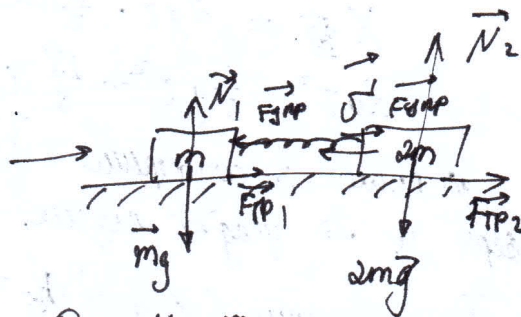 N⃗₂
N⃗₁ F⃗упр σ⃗ F⃗упр
m 2m
F⃗тр₁ F⃗тр₂
m⃗g 2mg⃗